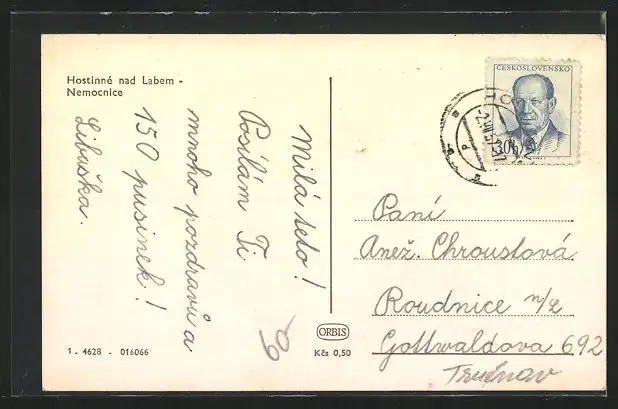 Hostinné nad Labem -
Nemocnice
Milá teto!
Posílám Ti
mnoho pozdravů a
150 pusinek!
Libuška.
ČESKOSLOVENSKO
30h
Paní
Anež. Chroustová
Roudnice n/L
Gottwaldova 692
Trutnov
ORBIS
Kčs 0,50
1 - 4628 - 016066